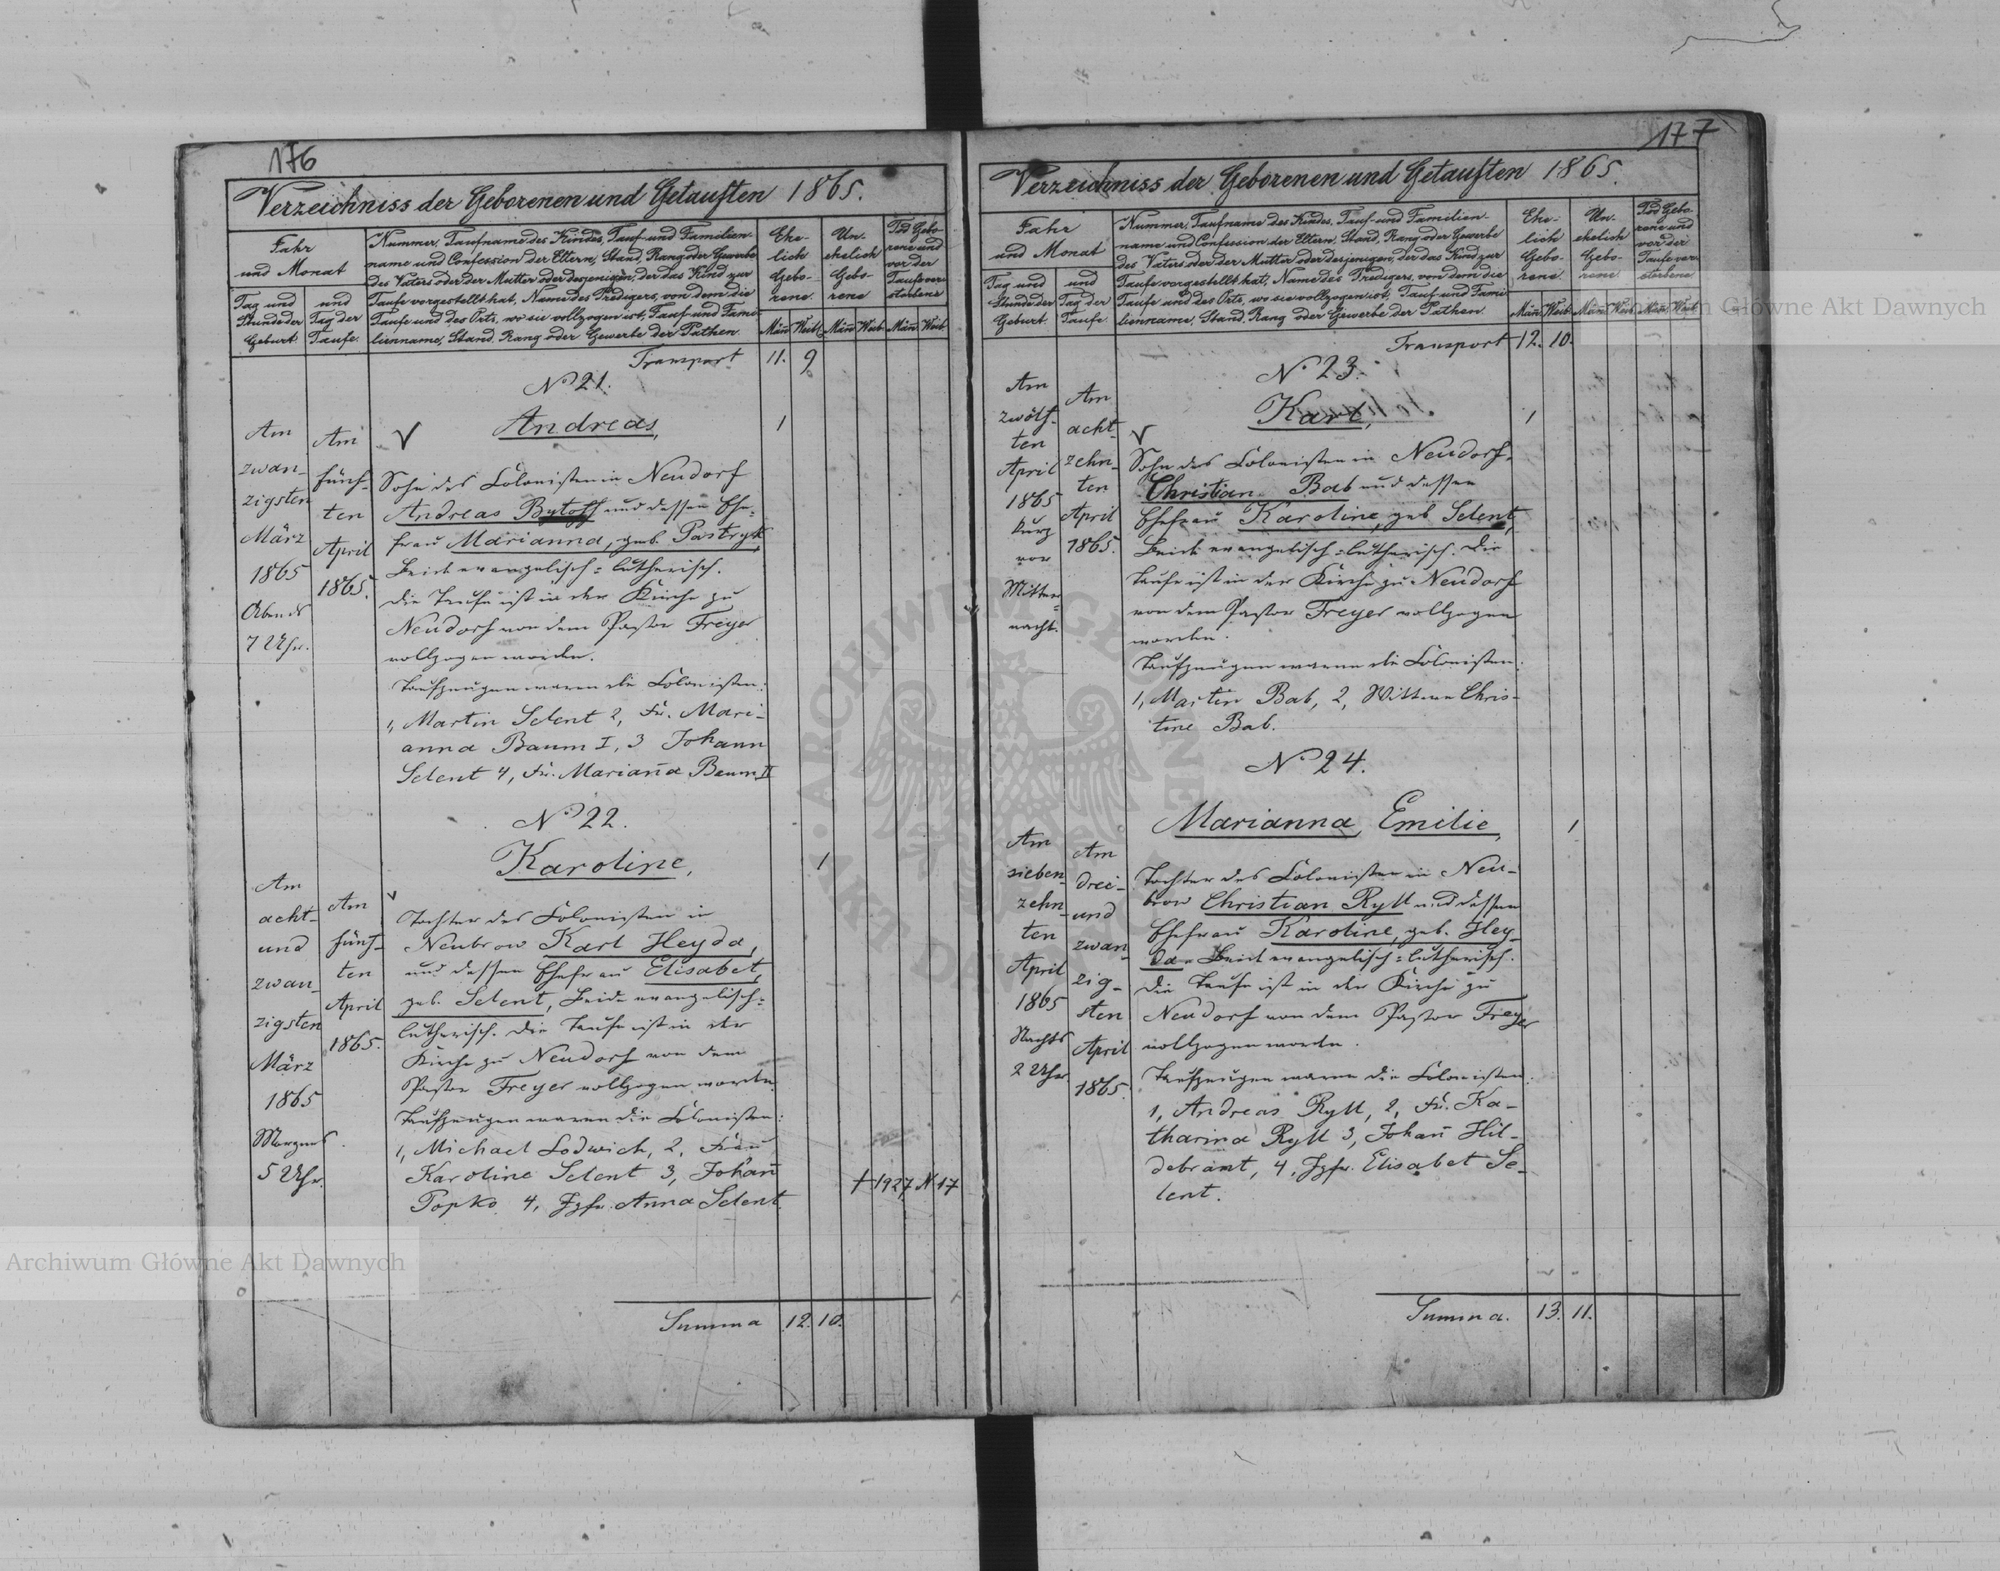 176
Verzeichniss der Geborenen und Getauften 1865.
Jahr und Monat
Tag und Stunde der Geburt.
und Tag der Taufe.
Nummer, Taufname des Kindes, Tauf- und Familien-
name und Confession der Eltern, Stand, Rang oder Gewerbe
des Vaters oder der Mutter oder desjenigen, der das Kind zur
Taufe vorgestellt hat, Name des Predigers, von dem die
Taufe und des Orts, wo sie vollzogen ist, Tauf- und Fami-
lienname, Stand, Rang oder Gewerbe der Pathen.
Ehe-
lich
Gebo-
rene
Un-
ehelich
Gebo-
rene
Tod Gebo-
rene und
vor der
Taufe ver-
storbene
Män Weib. Män Weib. Män Weib.
Transport 11. 9
No 21.
Andreas, 1
Am
zwan-
zigsten
März
1865
Abends
7 Uhr.
Am
fünf-
ten
April
1865.
Sohn des Colonisten in Neudorf
Andreas Bytoff und dessen Ehe-
frau Marianna, geb. Pastryk
Beide evangelisch-lutherisch.
Die Taufe ist in der Kirche zu
Neudorf von dem Pastor Freyer
vollzogen worden.
Taufzeugen waren die Colonisten:
1, Martin Selent 2, Fr. Mari-
anna Baum I, 3 Johann
Selent 4, Fr. Marian̄a Baum II
No 22.
Karoline, 1
Am
acht-
und
zwan-
zigsten
März
1865
Morgens
5 Uhr.
Am
fünf-
ten
April
1865.
Tochter des Colonisten in
Neubrow Karl Heyda,
und dessen Ehefrau Elisabet,
geb. Selent, Beide evangelisch-
lutherisch. Die Taufe ist in der
Kirche zu Neudorf von dem
Pastor Freyer vollzogen worden.
Taufzeugen waren die Colonisten:
1, Michael Lodwich, 2, Frau
Karoline Selent 3, Johan̄
Popko 4, Jgfr. Anna Selent.
† 1927 N 17
Summa 12. 10.
177
Verzeichniss der Geborenen und Getauften 1865.
Jahr
und Monat
Tag und
Stunde der
Geburt.
und
Tag der
Taufe
Nummer, Taufname des Kindes, Tauf- und Familien-
name und Confession der Eltern, Stand, Rang oder Gewerbe
des Vaters oder der Mutter oder desjenigen, der das Kind zur
Taufe vorgestellt hat, Name des Predigers, von dem die
Taufe und des Orts, wo sie vollzogen ist, Tauf- und Fami-
lienname, Stand, Rang oder Gewerbe der Pathen.
Ehe-
lich
Gebo-
rene
Un-
ehelich
Gebo-
rene
Tod Gebo-
rene und
vor der
Taufe ver-
storbene
Män Weib. Män Weib. Män Weib.
Transport 12. 10.
No 23.
Karl, 1
Am
zwölf-
ten
April
1865
kurz
vor
Mitter-
nacht.
Am
acht-
zehn-
ten
April
1865.
Sohn des Colonisten in Neudorf
Christian Bab und dessen
Ehefrau Karoline, geb Selent,
Beide evangelisch-lutherisch. Die
Taufe ist in der Kirche zu Neudorf
von dem Pastor Freyer vollzogen
worden.
Taufzeugen waren die Colonisten:
1, Martin Bab, 2, Wittwe Chris-
tine Bab.
No 24.
Marianna, Emilie, 1
Am
sieben-
zehn-
ten
April
1865
Nachts
2 Uhr.
Am
drei-
und
zwan-
zig-
sten
April
1865.
Tochter des Colonisten in Neu-
brow Christian Ryll und dessen
Ehefrau Karoline, geb. Hey-
da. Beide evangelisch-lutherisch.
Die Taufe ist in der Kirche zu
Neudorf von dem Pastor Freyer
vollzogen worden.
Taufzeugen waren die Colonisten:
1, Andreas Ryll, 2, Fr. Ka-
tharina Ryll 3, Johan̄ Hil-
debrant, 4, Jgfr. Elisabet Se-
lent.
Summa. 13. 11.
Archiwum Główne Akt Dawnych
m Główne Akt Dawnych
ARCHIWUM GŁÓWNE AKT DAWNYCH